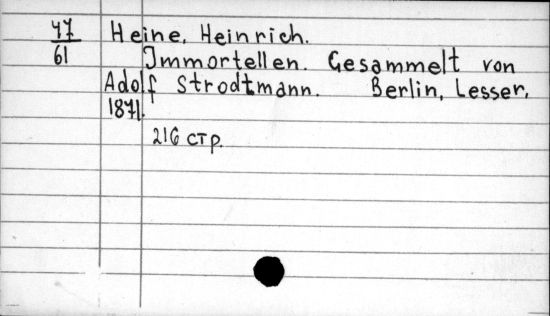 47
61
Heine, Heinrich.
Immortellen. Gesammelt von
Adolf Strodtmann. Berlin, Lesser,
1871.
216 стр.